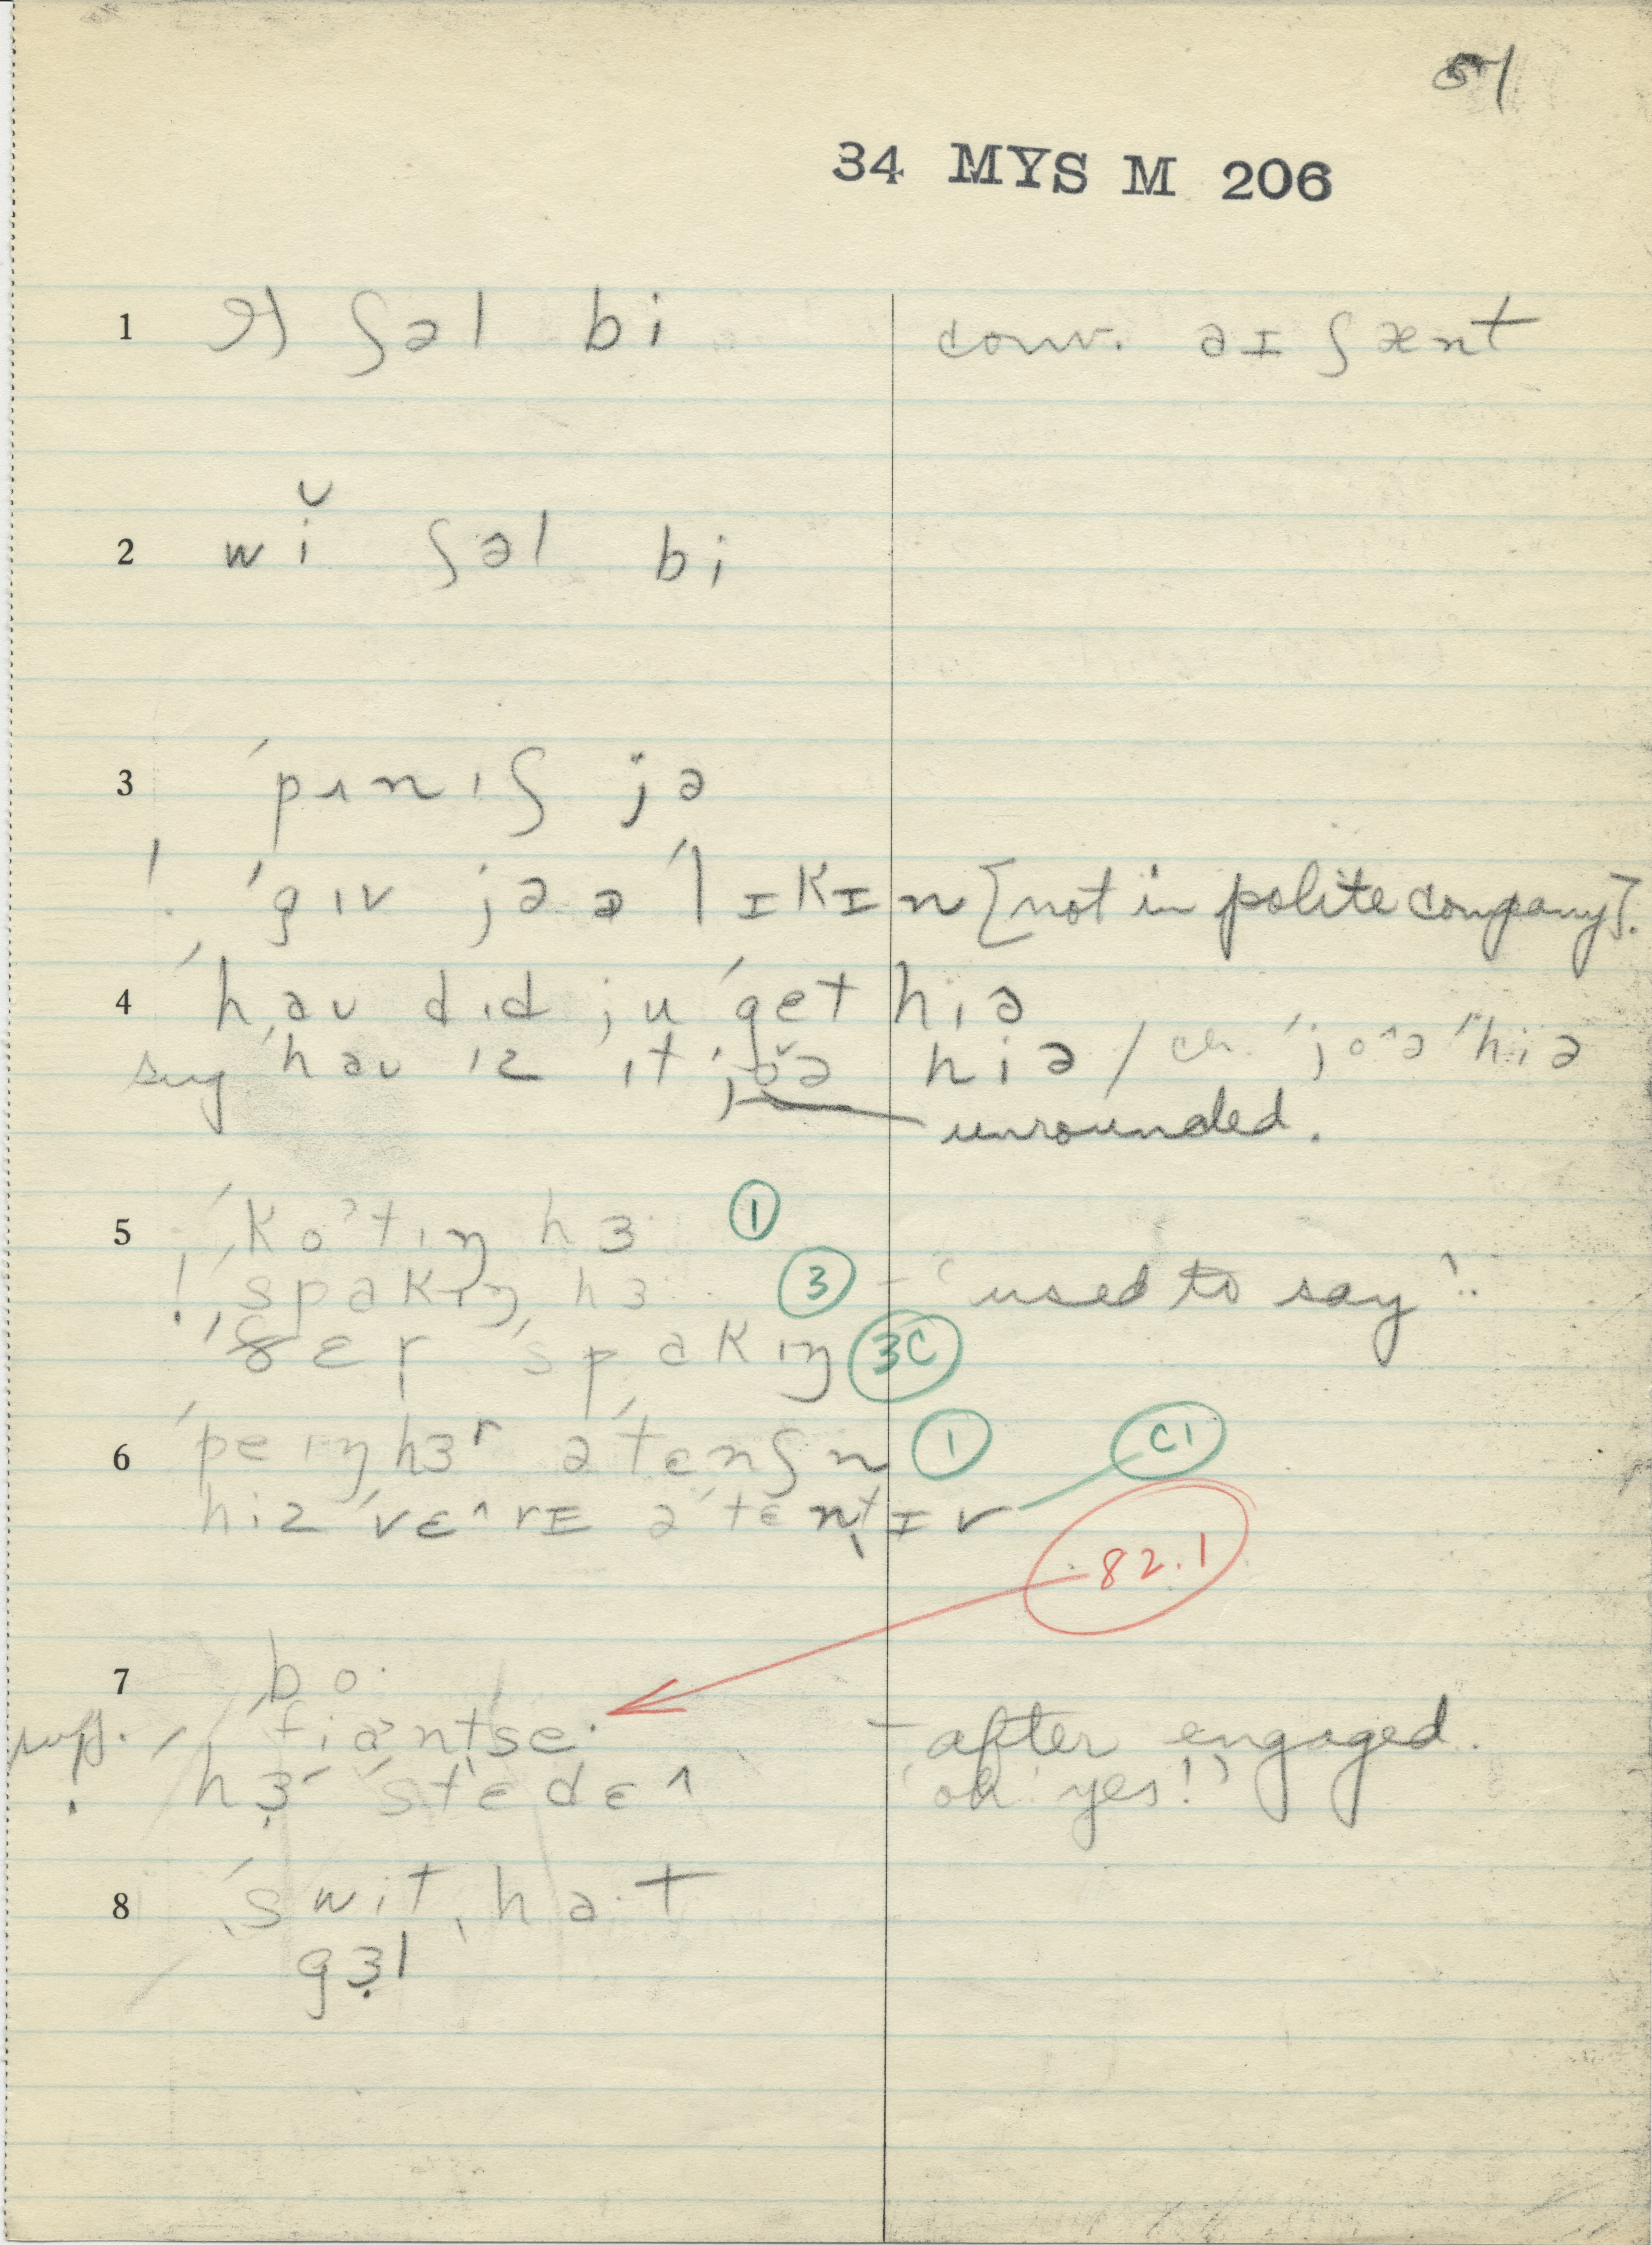 51
34 MYS M 206
1 ʃəl bi conv. aɪ ʃænt
2 wĭ ʃəl bi
3 ˈpʌnɪʃ jə
! ˈgɪv jə ə ˈlɪkɪn [not in polite company].
4 ˈhaʊ dɪd ju ˈget hiə
sug ˈhaʊ ɪz ɪt hiə / cr. ˈjo^ə ˈhiə
unrounded.
5 ˈko˃tɪŋ hɜ 1
! ˈspakɪŋ hɜ 3 – 'used to say'.
ˈspakɪŋ 3C
6 ˈpeɪɪŋ hɜʳ əˈtɛnʃn 1
hiz ˈvɛ^rɪ əˈtɛntɪv C1
82.1
7 bo·
sugg. fiantse· – after engaged.
! hɜ ˈstɛdɛ^ 'oh yes!'
8 ˈswitˌha·t
gɜl